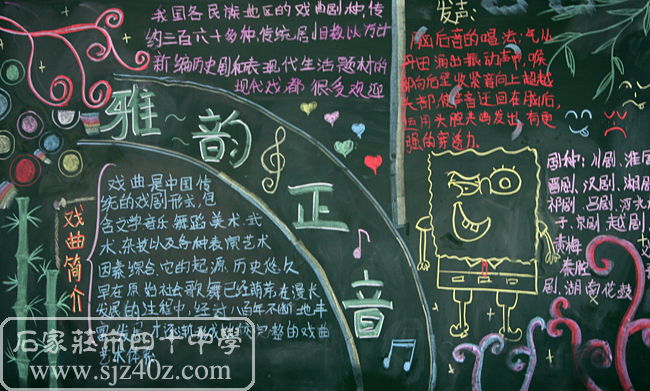 我国各民族地区的戏曲剧种,传
约三百六十多种,传统居旧数以万计
新编历史剧和表现代生活题材的
现代戏都很受欢迎
发声:
脑后音的唱法:气从
丹田涌出振动声带,喉
头部使声音迂回在脑后,
运用头腔共鸣发出有更
强的穿透力.
雅~韵
正
音
戏曲简介
戏曲是中国传
统的戏剧形式,但
含文学音乐舞蹈.美术.武
术.杂技以及各种表演艺术
因素综合.它的起源.历史悠久.
早在原始社会歌舞已经萌芽在漫长
发展的过程中,经过八百年不断地丰
完整的戏曲
艺术体系.
剧种:川剧,淮剧
晋剧,汉剧,湘剧
祁剧,吕剧,河北
子,京剧,越剧,
黄梅
秦腔
剧,湖南花鼓
石家莊市四十中學
www.sjz40z.com